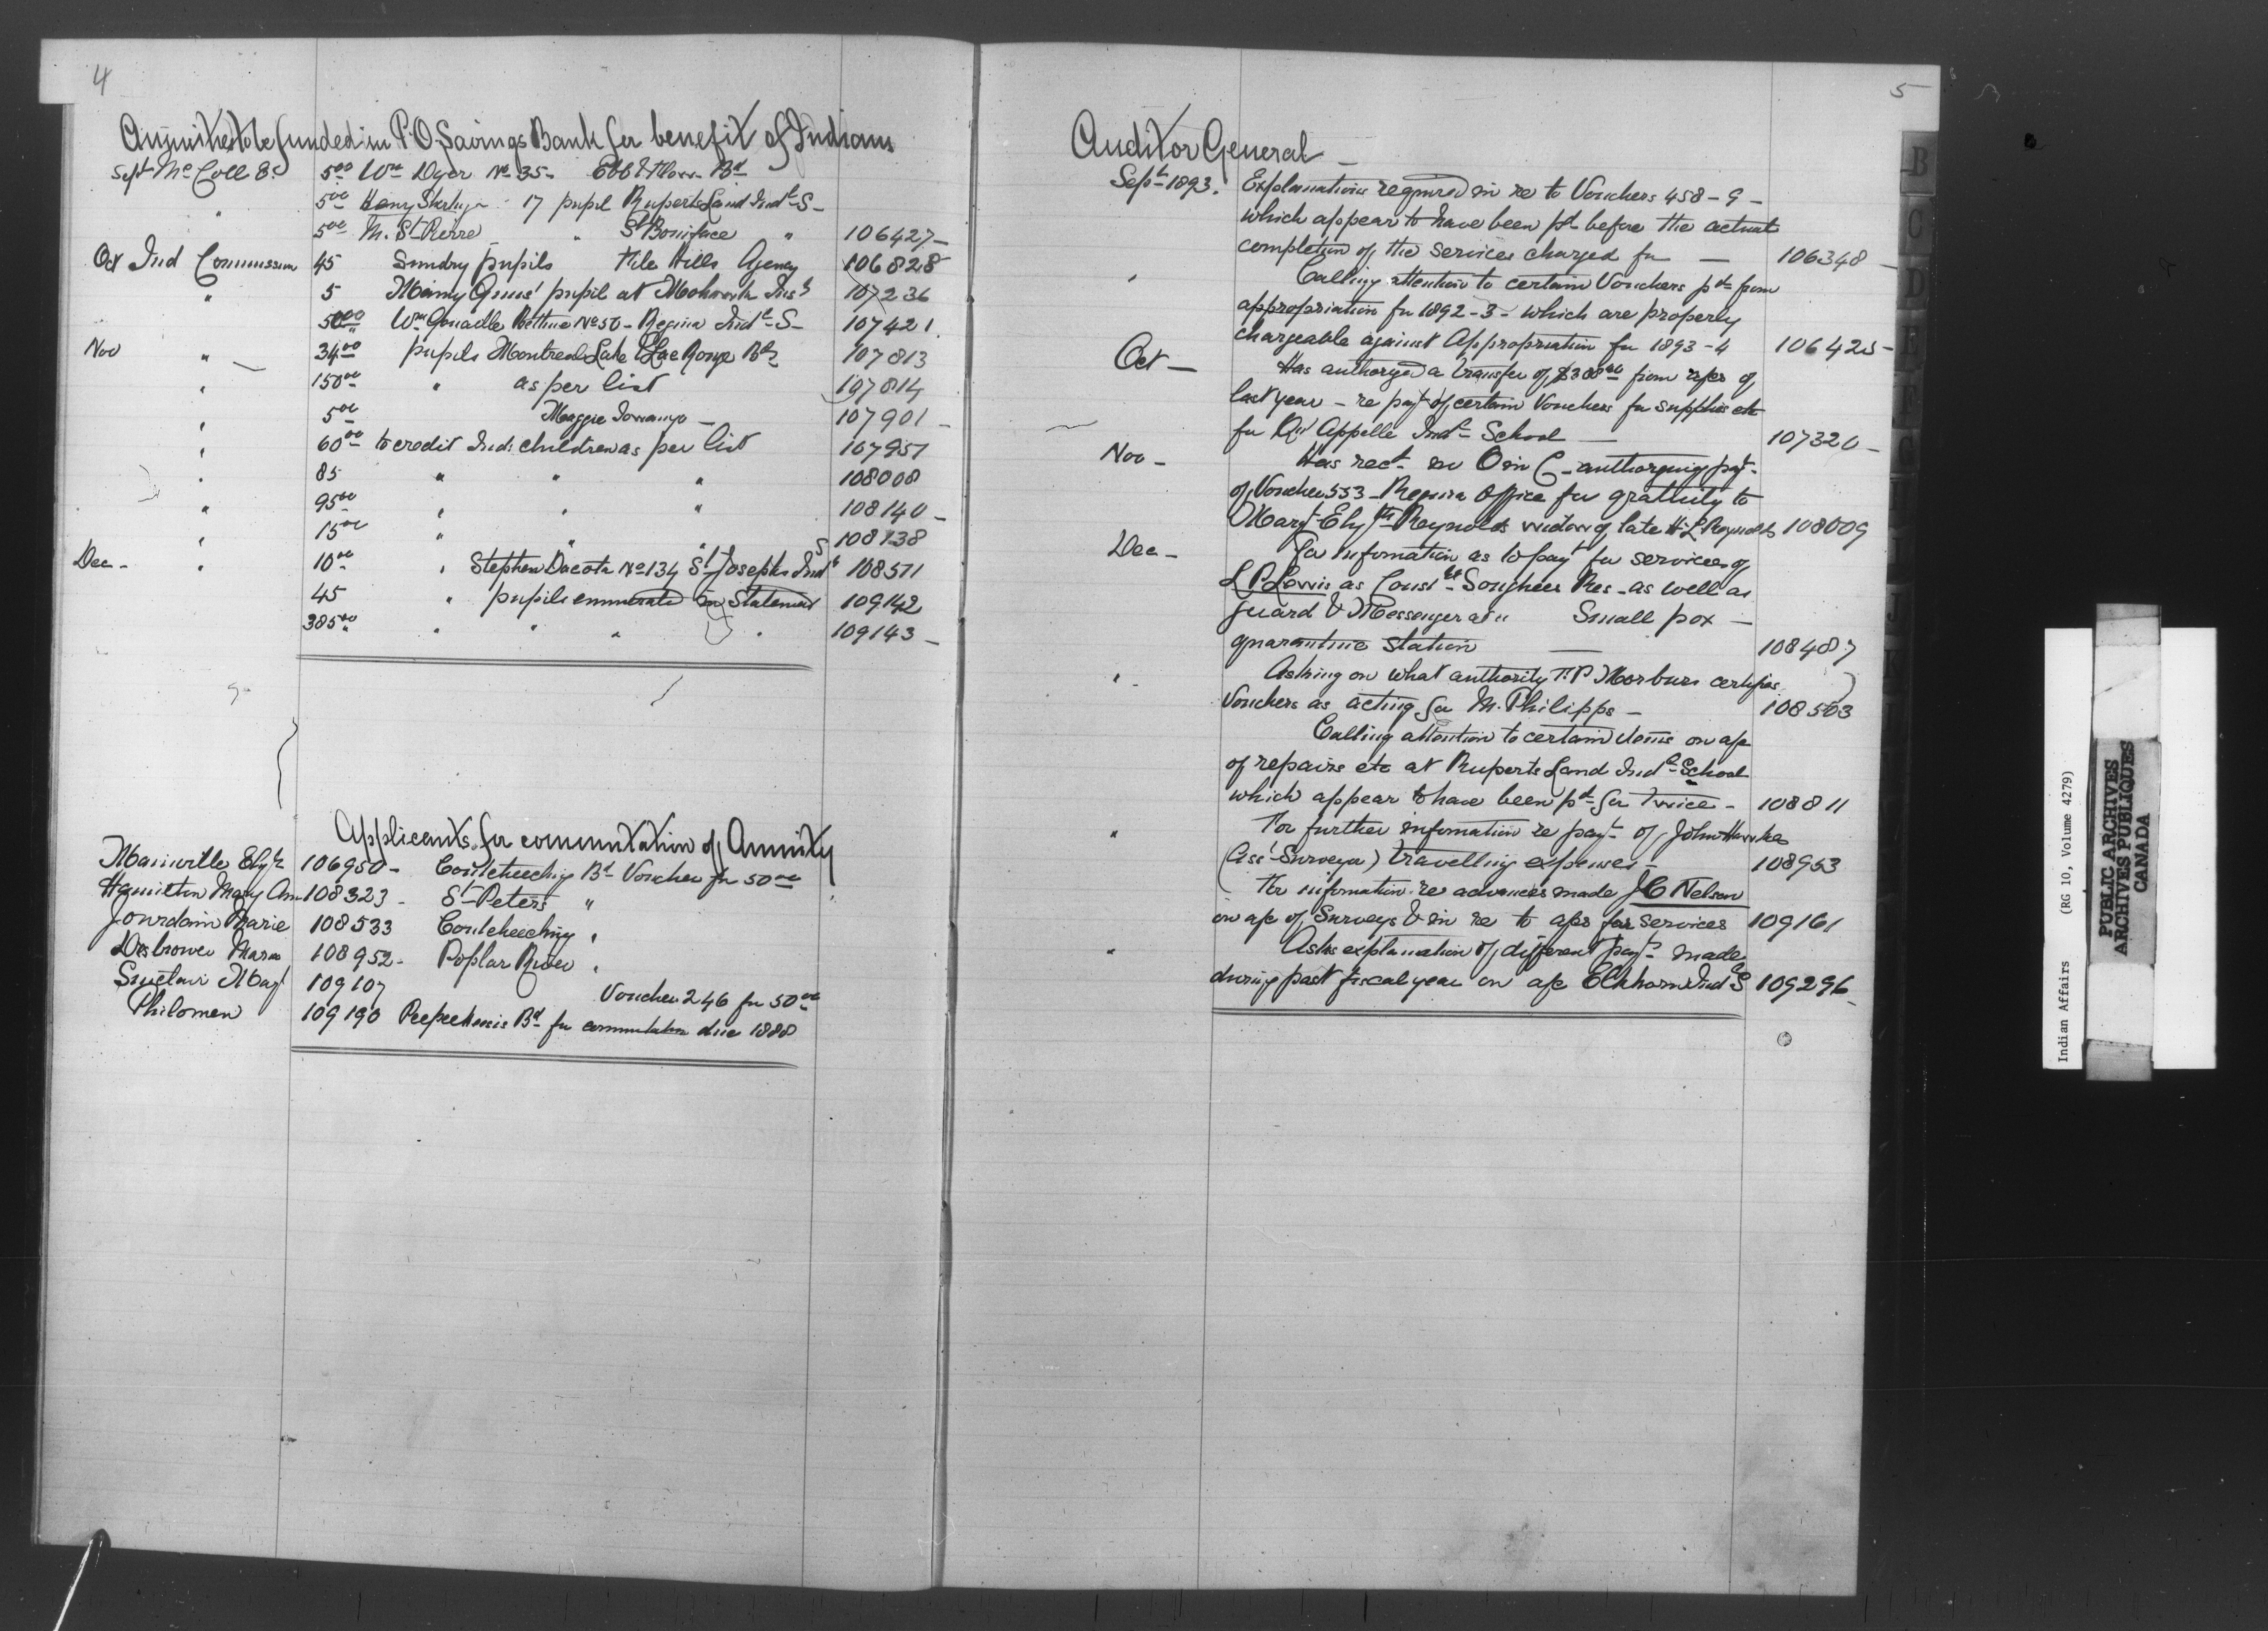 4
Annuities to be funded in P.O. Savings Bank for benefit of Indians
Sept Mc Coll E. 5.00 Wm Dyer No 35 - Ebb & Flow Bd
" 5.00 Henry 17 pupil Ruperts Land Indl S -
5.00 M. St Pierre " St Boniface " 106427 -
Oct Ind Commission 45 Sundry pupils File Hills Agency 106828
" 5 pupil at Mohawk Inst 107236
50.00 Wm Bethune No 50 - Regina Indl S - 107421
Nov " 34.00 pupils Montreal Lake & Lac Ronge Bds 107813
" 150.00 " as per list 107814
" 5.00 Maggie 107901 -
" 60.00 to credit Ind. children as per list 107951
" 85 " " " 108008
" 95.00 " " " 108140 -
" 15.00 " " " 108738
Dec - " 10.00 " Stephen Dacota No 134 St Josephs Indl S 108571
45 " pupils enumerated in Statement 109142
385.00 " " " " 109143 -
Applicants for commutation of Annuity
Mainville Elizth 106950 - Coutcheeching Bd Voucher for 50.00
Hamilton Mary Ann 108323 - St Peters "
Jourdain Marie 108533 Coutcheeching "
Disbrowe Maria 108952 - Poplar River "
Sinclair Margt 109107 Voucher 246 for 50.00
Philomen 109190 Peepeekesis Bd for commutation due 1888
5
Auditor General -
Sept 1893. Explanations required in re to Vouchers 458 - 9 -
which appear to have been pd before the actual
completion of the services charged for - 106348 -
" Calling attention to certain Vouchers pd from
appropriation for 1892 - 3 - which are properly
chargeable against Appropriation for 1893 - 4 106425 -
Oct - Has authorized a transfer of $300.00 from apro of
last year - re payt of certain Vouchers for supplies etc
for Qu'Appelle Indl School - 107320 -
Nov - Has rect an O in C - authorizing payt
of Voucher 553 - Regina Office for gratuity to
Margt Elizth Reynolds widow of late H. L. Reynolds 108009
Dec - For information as to payt for services of
L P Lewis as Constle Songhees Res - as well as
guard & Messenger at " Small pox -
quarantine station - 108487
" - Asking on what authority T. P certifies
Vouchers as acting for M. Philipps - 108503
Calling attention to certain items on a/c
of repairs etc at Ruperts Land Indl School
which appear to have been pd for twice - 108811
" For further information re payt of John Hawkes
(Asst Surveyor) travelling expenses - 108953
For information re advances made J C Nelson
on a/c of Surveys & in re to a/cs for services 109161
" Asks explanation of different payts made
during past fiscal year on a/c Elkhorn Indl S 109296 -
B
C
D
E
J
Indian Affairs (RG 10, Volume 4279)
PUBLIC ARCHIVES
ARCHIVES PUBLIQUES
CANADA